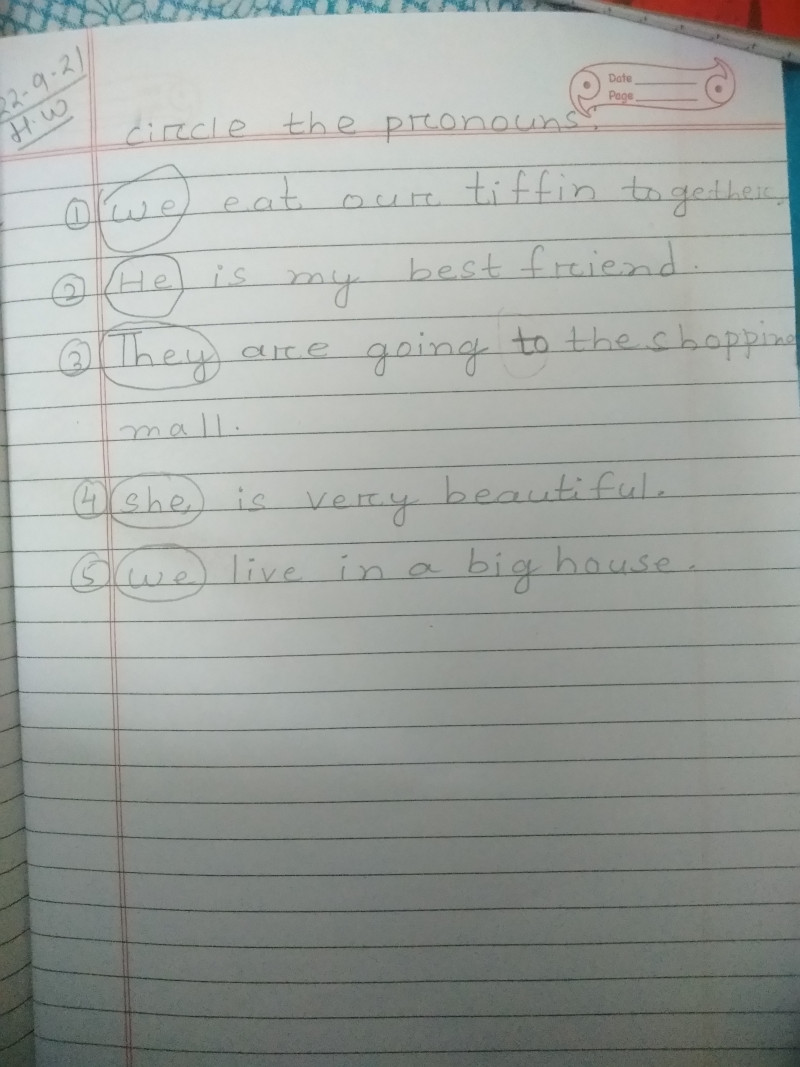 22-9-21
H.W
Date
Page
circle the pronouns.
① we eat our tiffin together.
② He is my best friend.
③ They are going to the shopping
mall.
④ she is very beautiful.
⑤ we live in a big house.